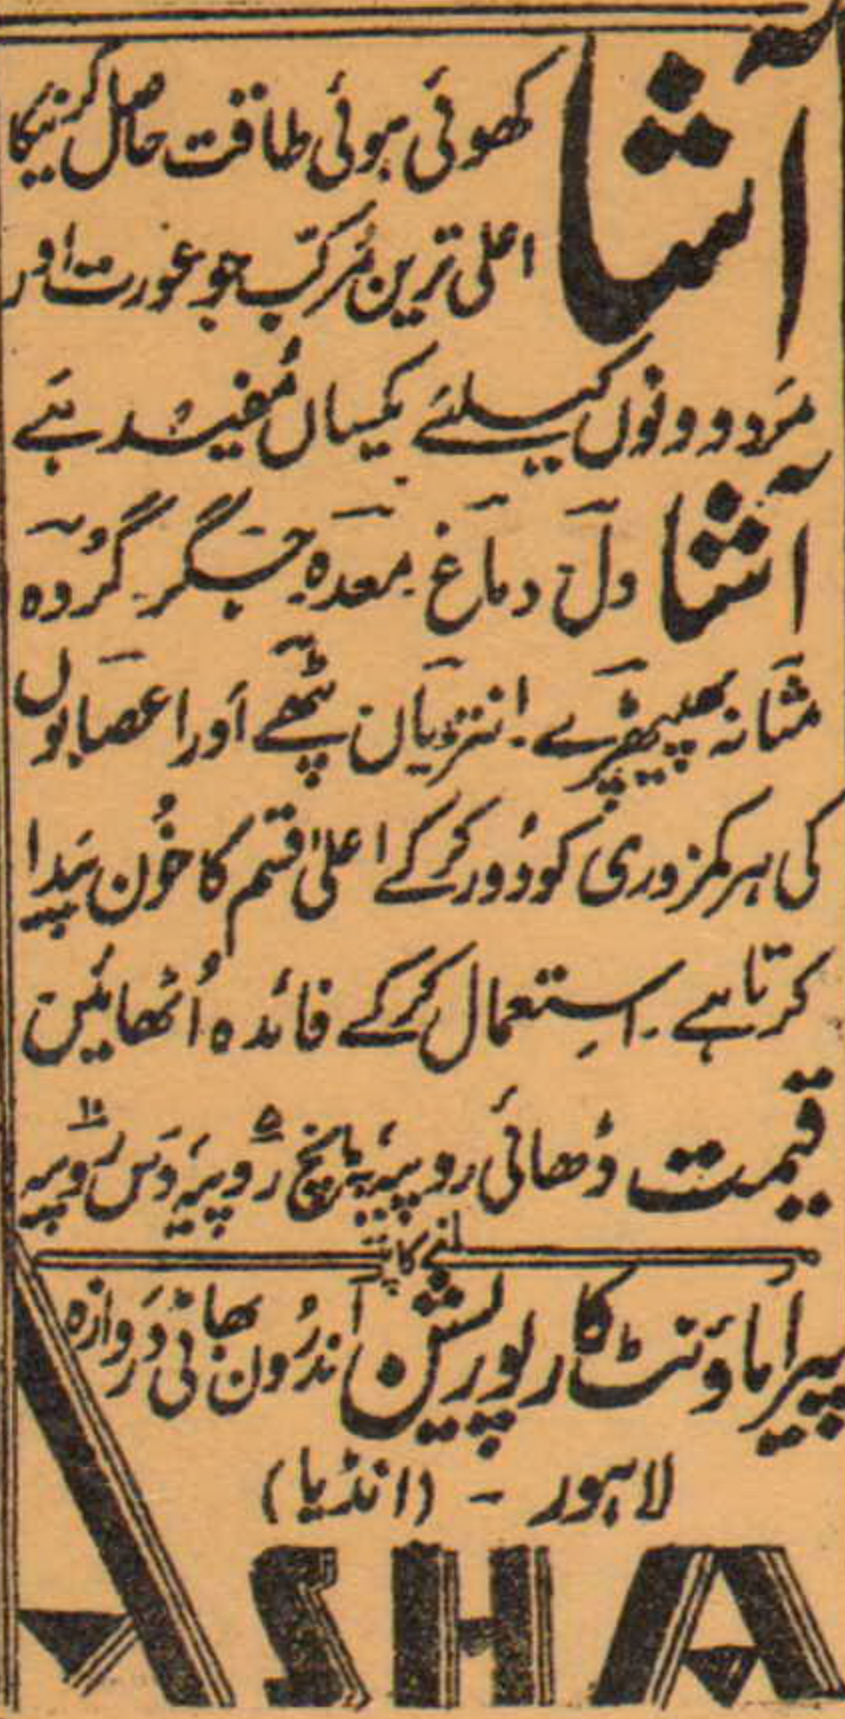 آشا کھوئی ہوئی طاقت حاصل کرنیکا
اعلیٰ ترین مُرکب جو عورت اور
مَرد دونوں کیلئے یکساں مُفید ہَے
آشا دل۔ دماغ۔ معدہ۔ جگر۔ گُردہ
مثانہ پھیپھڑے۔ انتڑیاں پٹھے اَور اعصابوں
کی ہر کمزوری کو دُور کرکے اعلیٰ قسم کا خُون پَیدا
کرتا ہے۔ اِستعمال کرکے فائدہ اُٹھائیں
قیمت ڈھائی روپیہ، پانچ ۵ روپیہ، دَس ۱۰ روپیہ
ملنے کا پتہ
پیراماؤنٹ کارپوریشن اندرُون بھاٹی دَروازہ
لاہور - (انڈیا)
ASHA